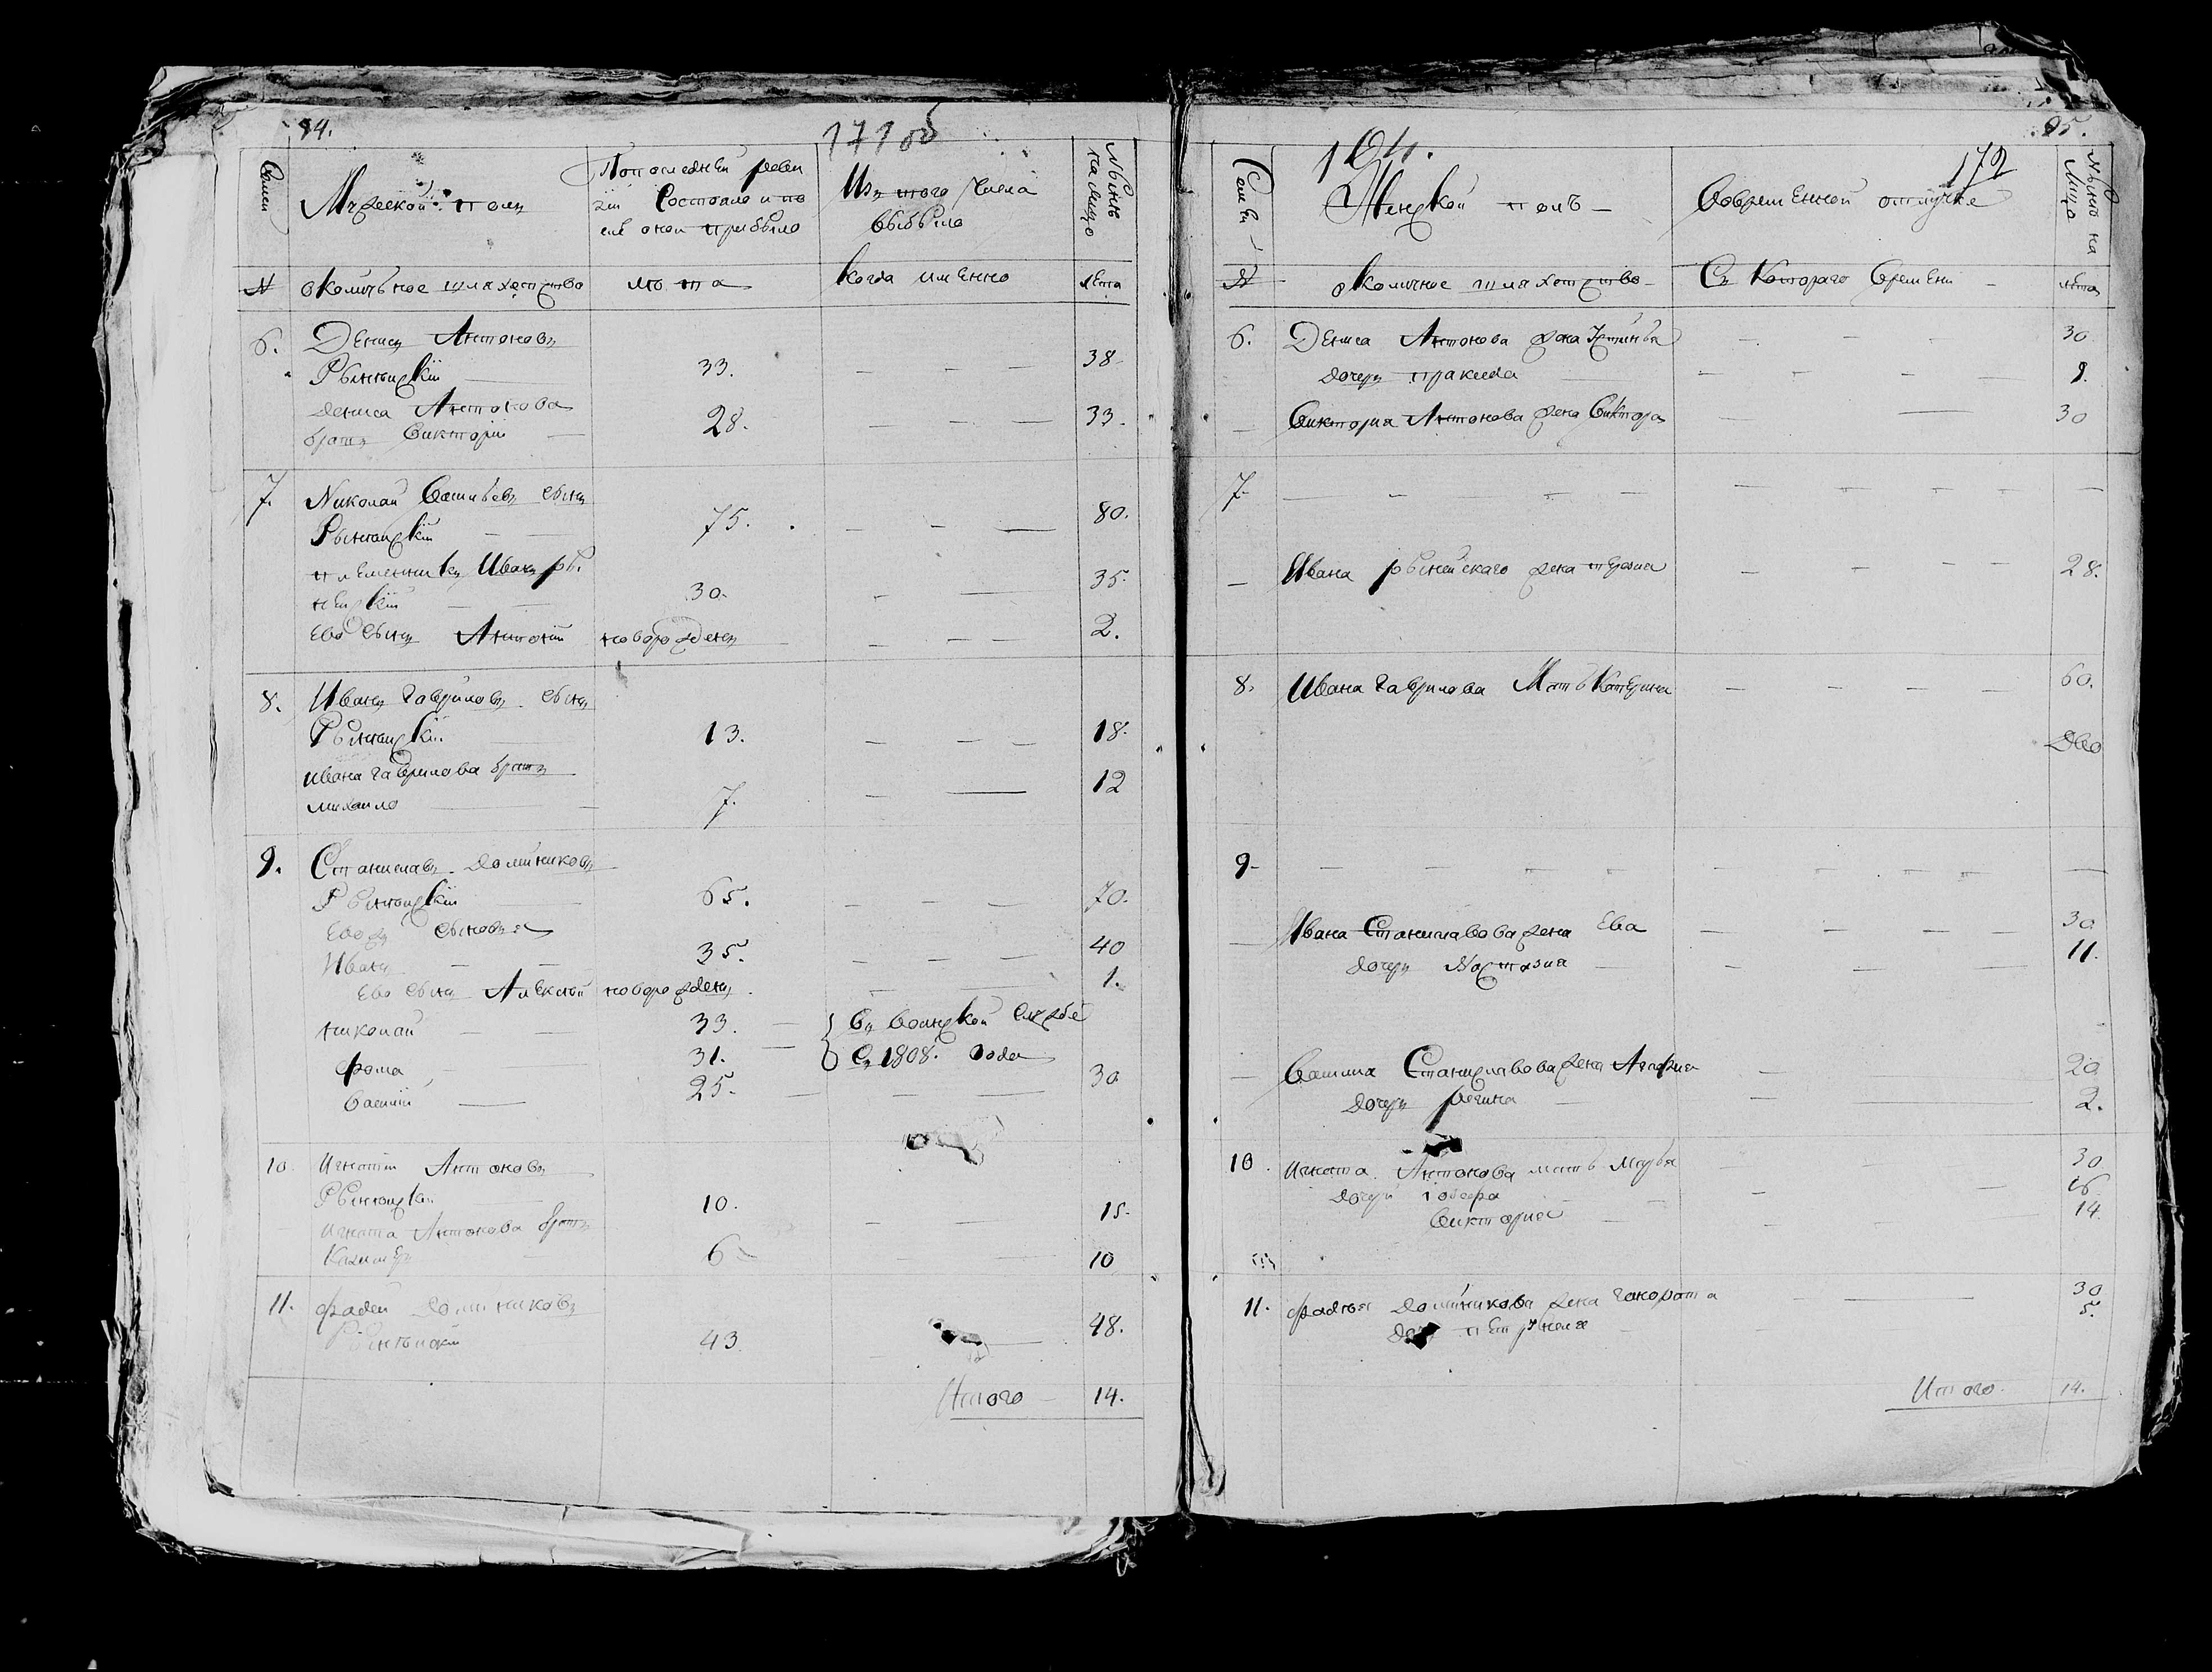 94.
171 об
Семьи
Мужеской полъ
По последней реви
зіи Состояло и по
слѣ оной прибыло
Изъ того Числа
выбыло
Нынѣ на лицо
№
околичное шляхетство
лѣта
Когда имянно
лѣта
6.
Денисъ Антоновъ
Рынтовскій 33. 38
Дениса Антонова
братъ Викторій 28. 33.
7. Николай Васильевъ сынъ
Рынтовскій 75. 80.
племянникъ Иванъ Ры
30. 35.
Ево сынъ Антоній новорожденъ 2.
8. Иванъ Гавриловъ сынъ
Рынтовскій 13. 18.
Ивана Гаврилова братъ 12
Михайло 7.
9. Станиславъ Доминиковъ
Рынтовскій 65. 70.
Ево сыновья
Иванъ 35. 40
Ево сынъ Алексѣй новорожденъ 1.
Николай 33. въ воинской службѣ
Фома 31. съ 1808. года
Василій 25. 30
10. Игнатій Антоновъ
Рынтовскій 10. 15.
Игната Антонова братъ
Казимеръ 6 10
11. Фадей Доминиковъ
Рынтовскій 43 48.
Итого 14.
95.
164.
172
Семьи
Женской полъ
Во временной отлучке
Нынѣ на лицо
№
околичное шляхетство
Съ Котораго времени
лѣта
6. Дениса Антонова жена Устинья 30
дочерь 9.
Виктория Антонова жена Виктора 30
7.
Ивана жена 28.
8. Ивана Гаврилова Мать Катерина 60.
9
Ивана Станиславова жена Ева 30
дочерь Настазия 11.
Василия Станиславова жена 20
дочерь Регина 2.
10. Игната Антонова мать Марья 30
дочери Іозефа 16.
Виктория 14.
11. Фадея Доминикова жена 30
Петрунеля 5.
Итого 14.